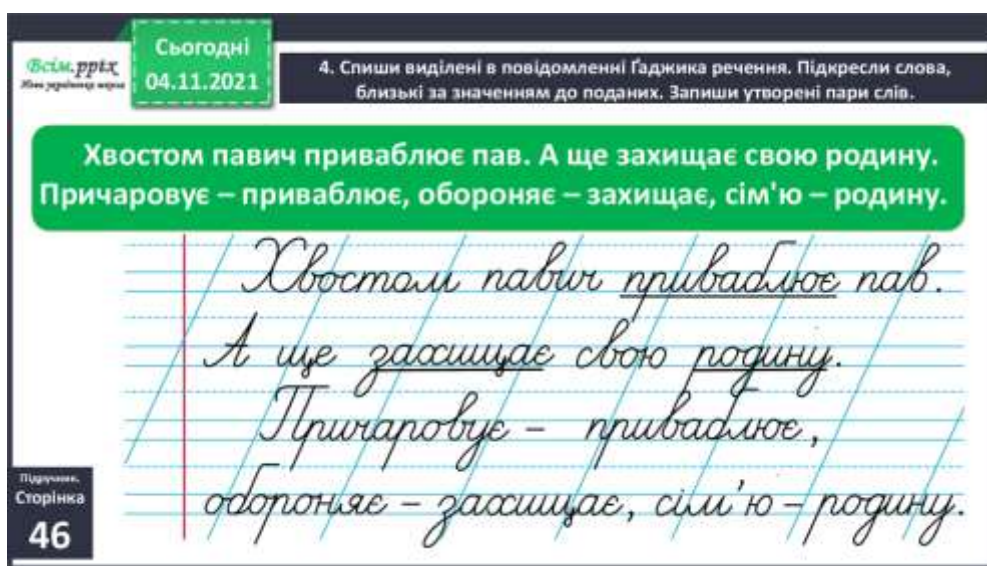 Всім.pptx
Нова українська школа
Сьогодні
04.11.2021
4. Спиши виділені в повідомленні Ґаджика речення. Підкресли слова,
близькі за значенням до поданих. Запиши утворені пари слів.
Хвостом павич приваблює пав. А ще захищає свою родину.
Причаровує – приваблює, обороняє – захищає, сім'ю – родину.
Хвостом павич приваблює пав.
А ще захищає свою родину.
Причаровує – приваблює,
обороняє – захищає, сім'ю – родину.
Підручник.
Сторінка
46